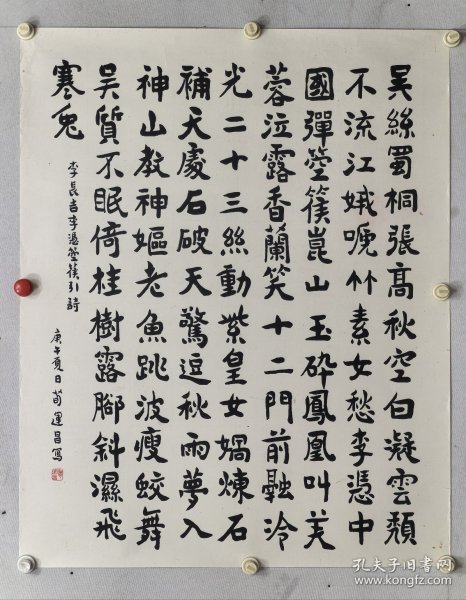 吴絲蜀桐張髙秋空白凝雲頹
不流江娥啼竹素女愁李憑中
國彈箜篌崑山玉碎鳳凰叫芙
蓉泣露香蘭笑十二門前融冷
光二十三絲動紫皇女媧煉石
補天處石破天驚逗秋雨夢入
神山教神嫗老魚跳波瘦蛟舞
吴質不眠倚桂樹露腳斜濕飛
寒兔
李長吉李憑箜篌引詩
庚午夏日荀運昌寫
孔夫子旧书网
www.kongfz.com